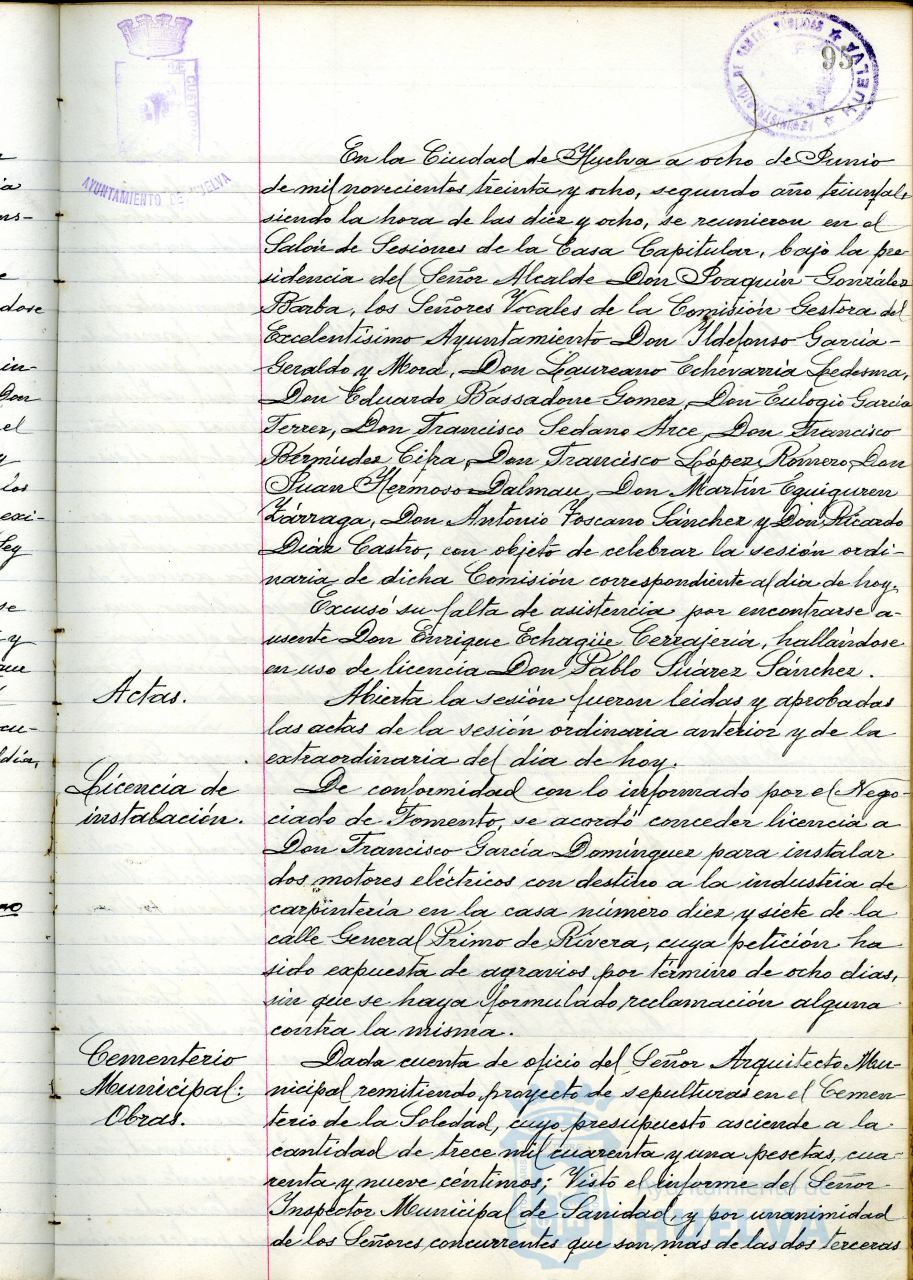 95
HUELVA
AYUNTAMIENTO DE HUELVA
En la Ciudad de Huelva a ocho de Junio
de mil novecientos treinta y ocho, segundo año triunfal,
siendo la hora de las diez y ocho, se reunieron en el
Salón de Sesiones de la Casa Capitular, bajo la pre
sidencia del Señor Alcalde Don Joaquín González
Barba, los Señores Vocales de la Comisión Gestora del
Excelentísimo Ayuntamiento Don Ildefonso García-
Geraldo y Mora, Don Laureano Echevarría Ledesma,
Don Eduardo Bassadone Gomez, Don Eulogio García
Ferrer, Don Francisco Sedano Arce, Don Francisco
Bermúdez Cifra, Don Francisco López Romero, Don
Juan Hermoso Dalmau, Don Martín Eguiguren
Zárraga, Don Antonio Toscano Sánchez y Don Ricardo
Díaz Castro, con objeto de celebrar la sesión ordi-
naria de dicha Comisión correspondiente al día de hoy.
Excusó su falta de asistencia por encontrarse a-
usente Don Enrique Echagüe Cerrajería, hallándose
en uso de licencia Don Pablo Suárez Sánchez.
Actas.
Abierta la sesión fueron leídas y aprobadas
las actas de la sesión ordinaria anterior y de la
extraordinaria del día de hoy.
Licencia de
instalación.
De conformidad con lo informado por el Nego-
ciado de Fomento, se acordó conceder licencia a
Don Francisco García Domínguez para instalar
dos motores eléctricos con destino a la industria de
carpintería en la casa número diez y siete de la
calle General Primo de Rivera, cuya petición ha
sido expuesta de agravios por término de ocho días,
sin que se haya formulado reclamación alguna
contra la misma.
Cementerio
Municipal:
Obras.
Dada cuenta de oficio del Señor Arquitecto Mu-
nicipal remitiendo proyecto de sepulturas en el Cemen-
terio de la Soledad, cuyo presupuesto asciende a la
cantidad de trece mil cuarenta y una pesetas, cua-
renta y nueve céntimos; Visto el informe del Señor
Inspector Municipal de Sanidad y por unanimidad
de los Señores concurrentes que son más de las dos terceras
Ayuntamiento de
HUELVA